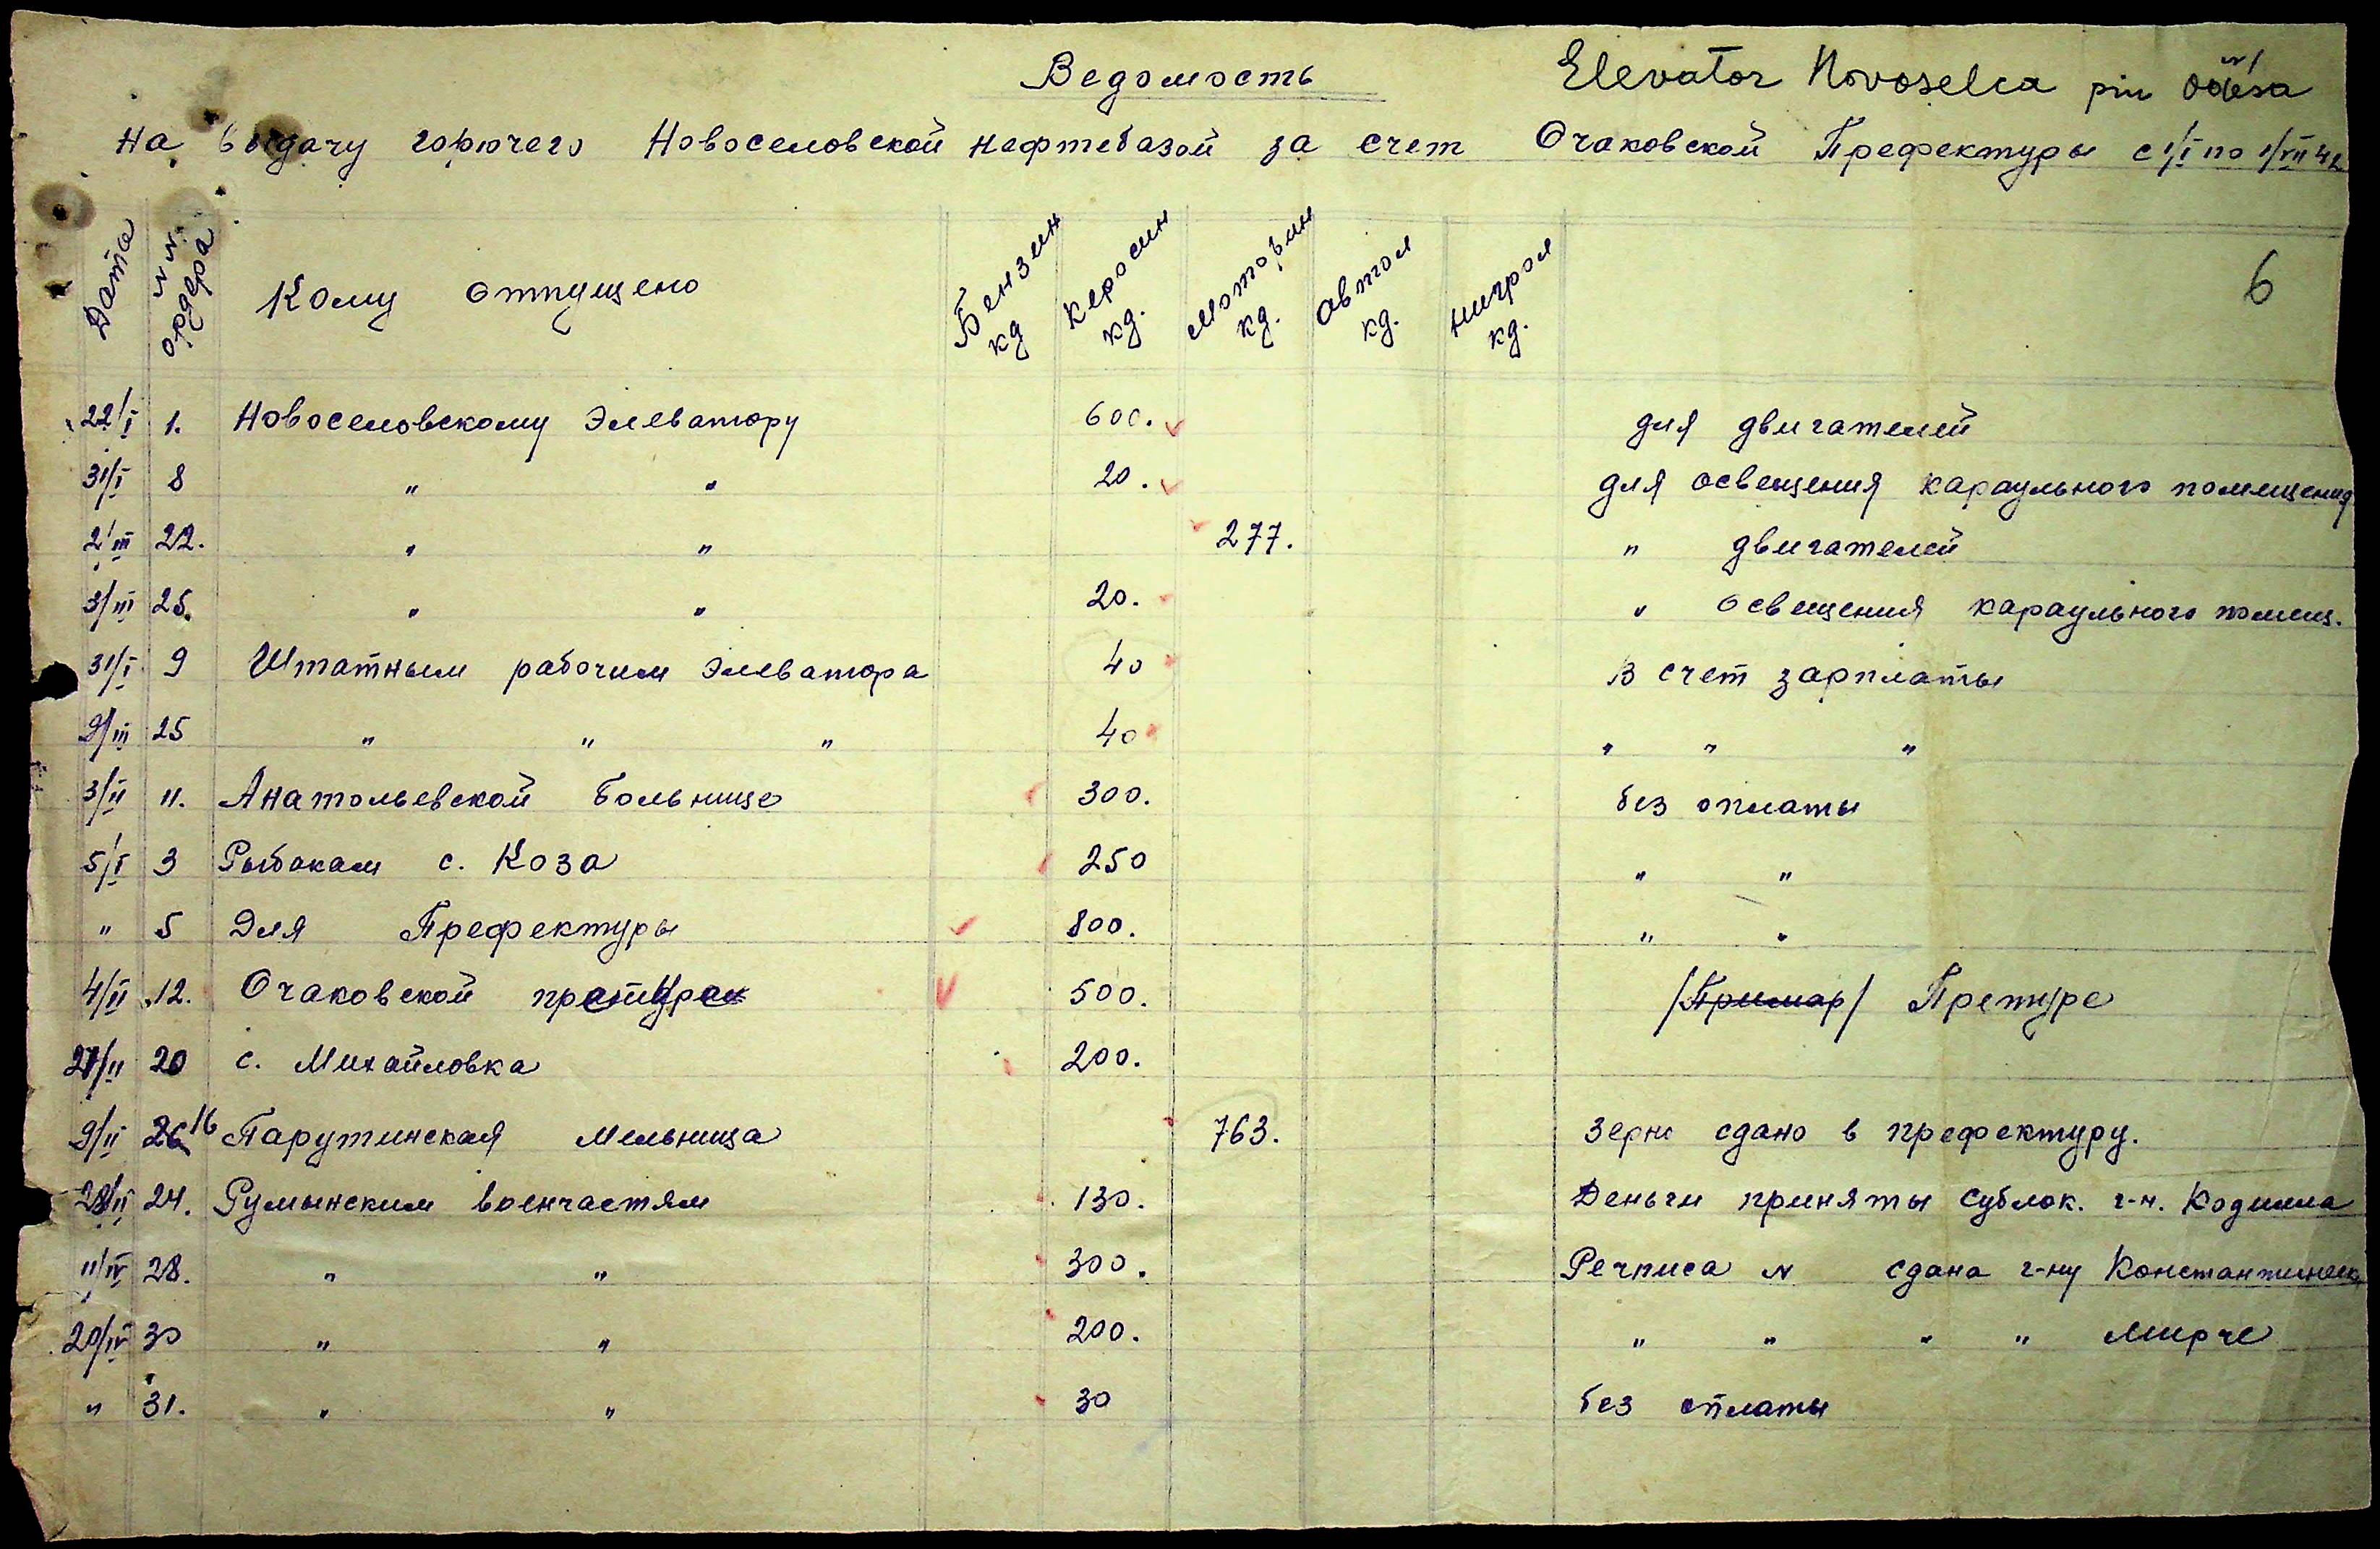 Ведомость
Elevator Novoselca prin Odesa
На выдачу горючего Новоселовской нефтебазой за счет Очаковской Префектуры с 1/I по 1/VII 42
Дата
N N ордера
Кому отпущено
Бензин кд
Керосин кд.
Моторин кд.
Автол кд.
Нигрол кд.
6
22/I 1. Новоселовскому Элеватору 600. для двигателей
31/I 8 " " 20. для освещения караульного помещения
2/III 22. " " 277. " двигателей
3/III 25. " " 20. " Освещения караульного помещ.
31/I 9 Штатным рабочим Элеватора 40 В счет зарплаты
9/III 25 " " " 40 " " "
3/II 11. Анатольевской Больнице 300. без оплаты
5/I 3 Рыбакам с. Коза 250 " "
" 5 Для Префектуры 800. " "
4/II 12. Очаковской претуре 500. /Примар/ Претуре
27/II 20 с. Михайловка 200.
9/II 26 16 Парутинская Мельница 763. Зерно сдано в префектуру.
28/II 24. Румынским военчастям 130. Деньги приняты сублок. г-н.
11/IV 28. " " 300. Речписа N сдана г-ну
20/IV 30 " " 200. " " " " Мирче
" 31. " " 30 без оплаты